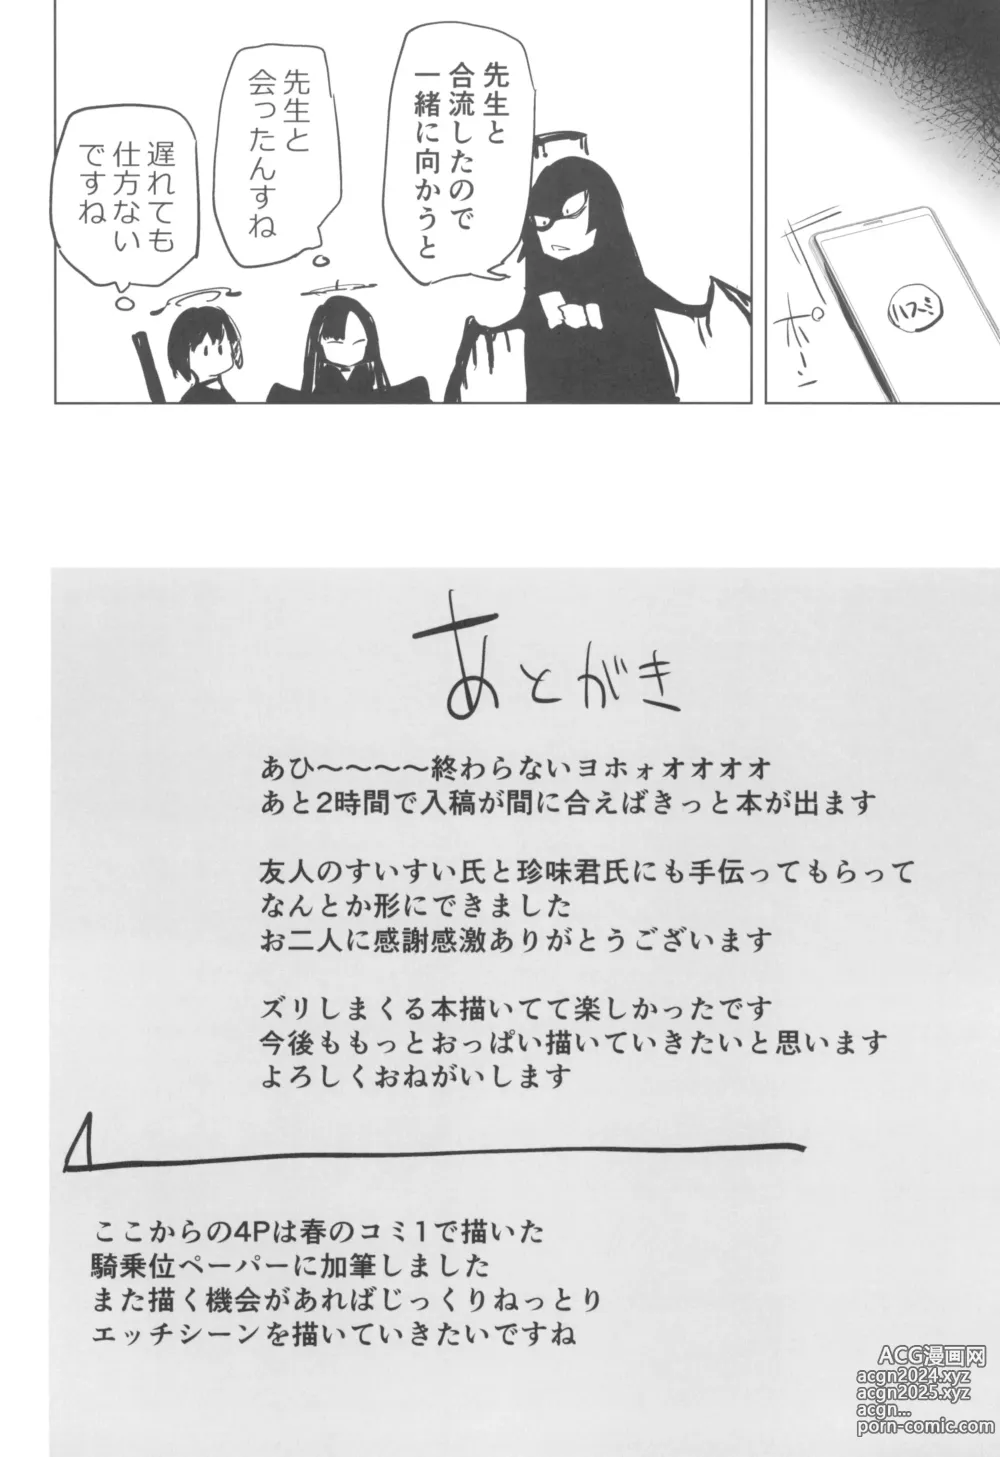 ハスミ
ポーン
先生と
合流したので
一緒に向かうと
先生と
会ったんすね
遅れても
仕方ない
ですね
あとがき
あひ～～～～終わらないヨホォオオオオ
あと2時間で入稿が間に合えばきっと本が出ます
友人のすいすい氏と珍味君氏にも手伝ってもらって
なんとか形にできました
お二人に感謝感激ありがとうございます
ズリしまくる本描いてて楽しかったです
今後ももっとおっぱい描いていきたいと思います
よろしくおねがいします
ここからの4Pは春のコミ1で描いた
騎乗位ペーパーに加筆しました
また描く機会があればじっくりねっとり
エッチシーンを描いていきたいですね
ACG漫画网
acgn2024.xyz
acgn2025.xyz
acgn...
porn-comic.com